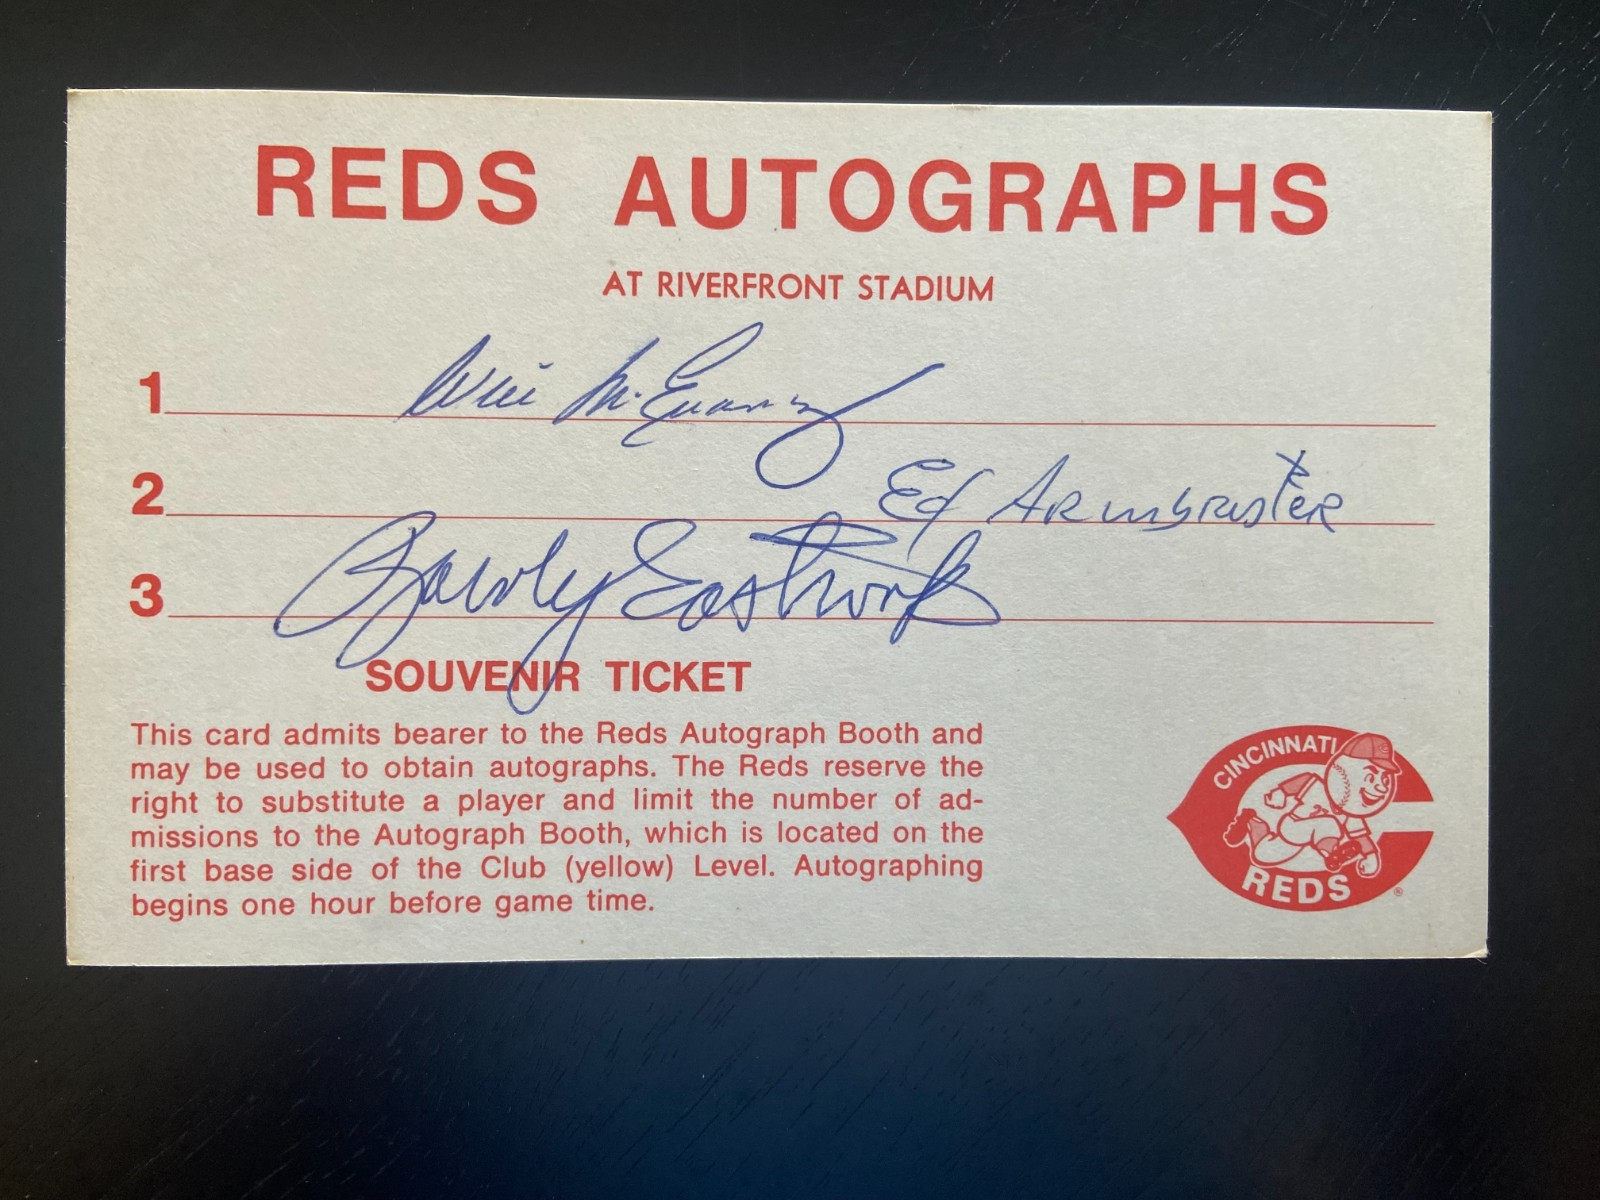 REDS AUTOGRAPHS
AT RIVERFRONT STADIUM
1 Will McEnaney
2 Ed Armbrister
3 Rawly Eastwick
SOUVENIR TICKET
This card admits bearer to the Reds Autograph Booth and
may be used to obtain autographs. The Reds reserve the
right to substitute a player and limit the number of ad-
missions to the Autograph Booth, which is located on the
first base side of the Club (yellow) Level. Autographing
begins one hour before game time.
CINCINNATI
REDS ®